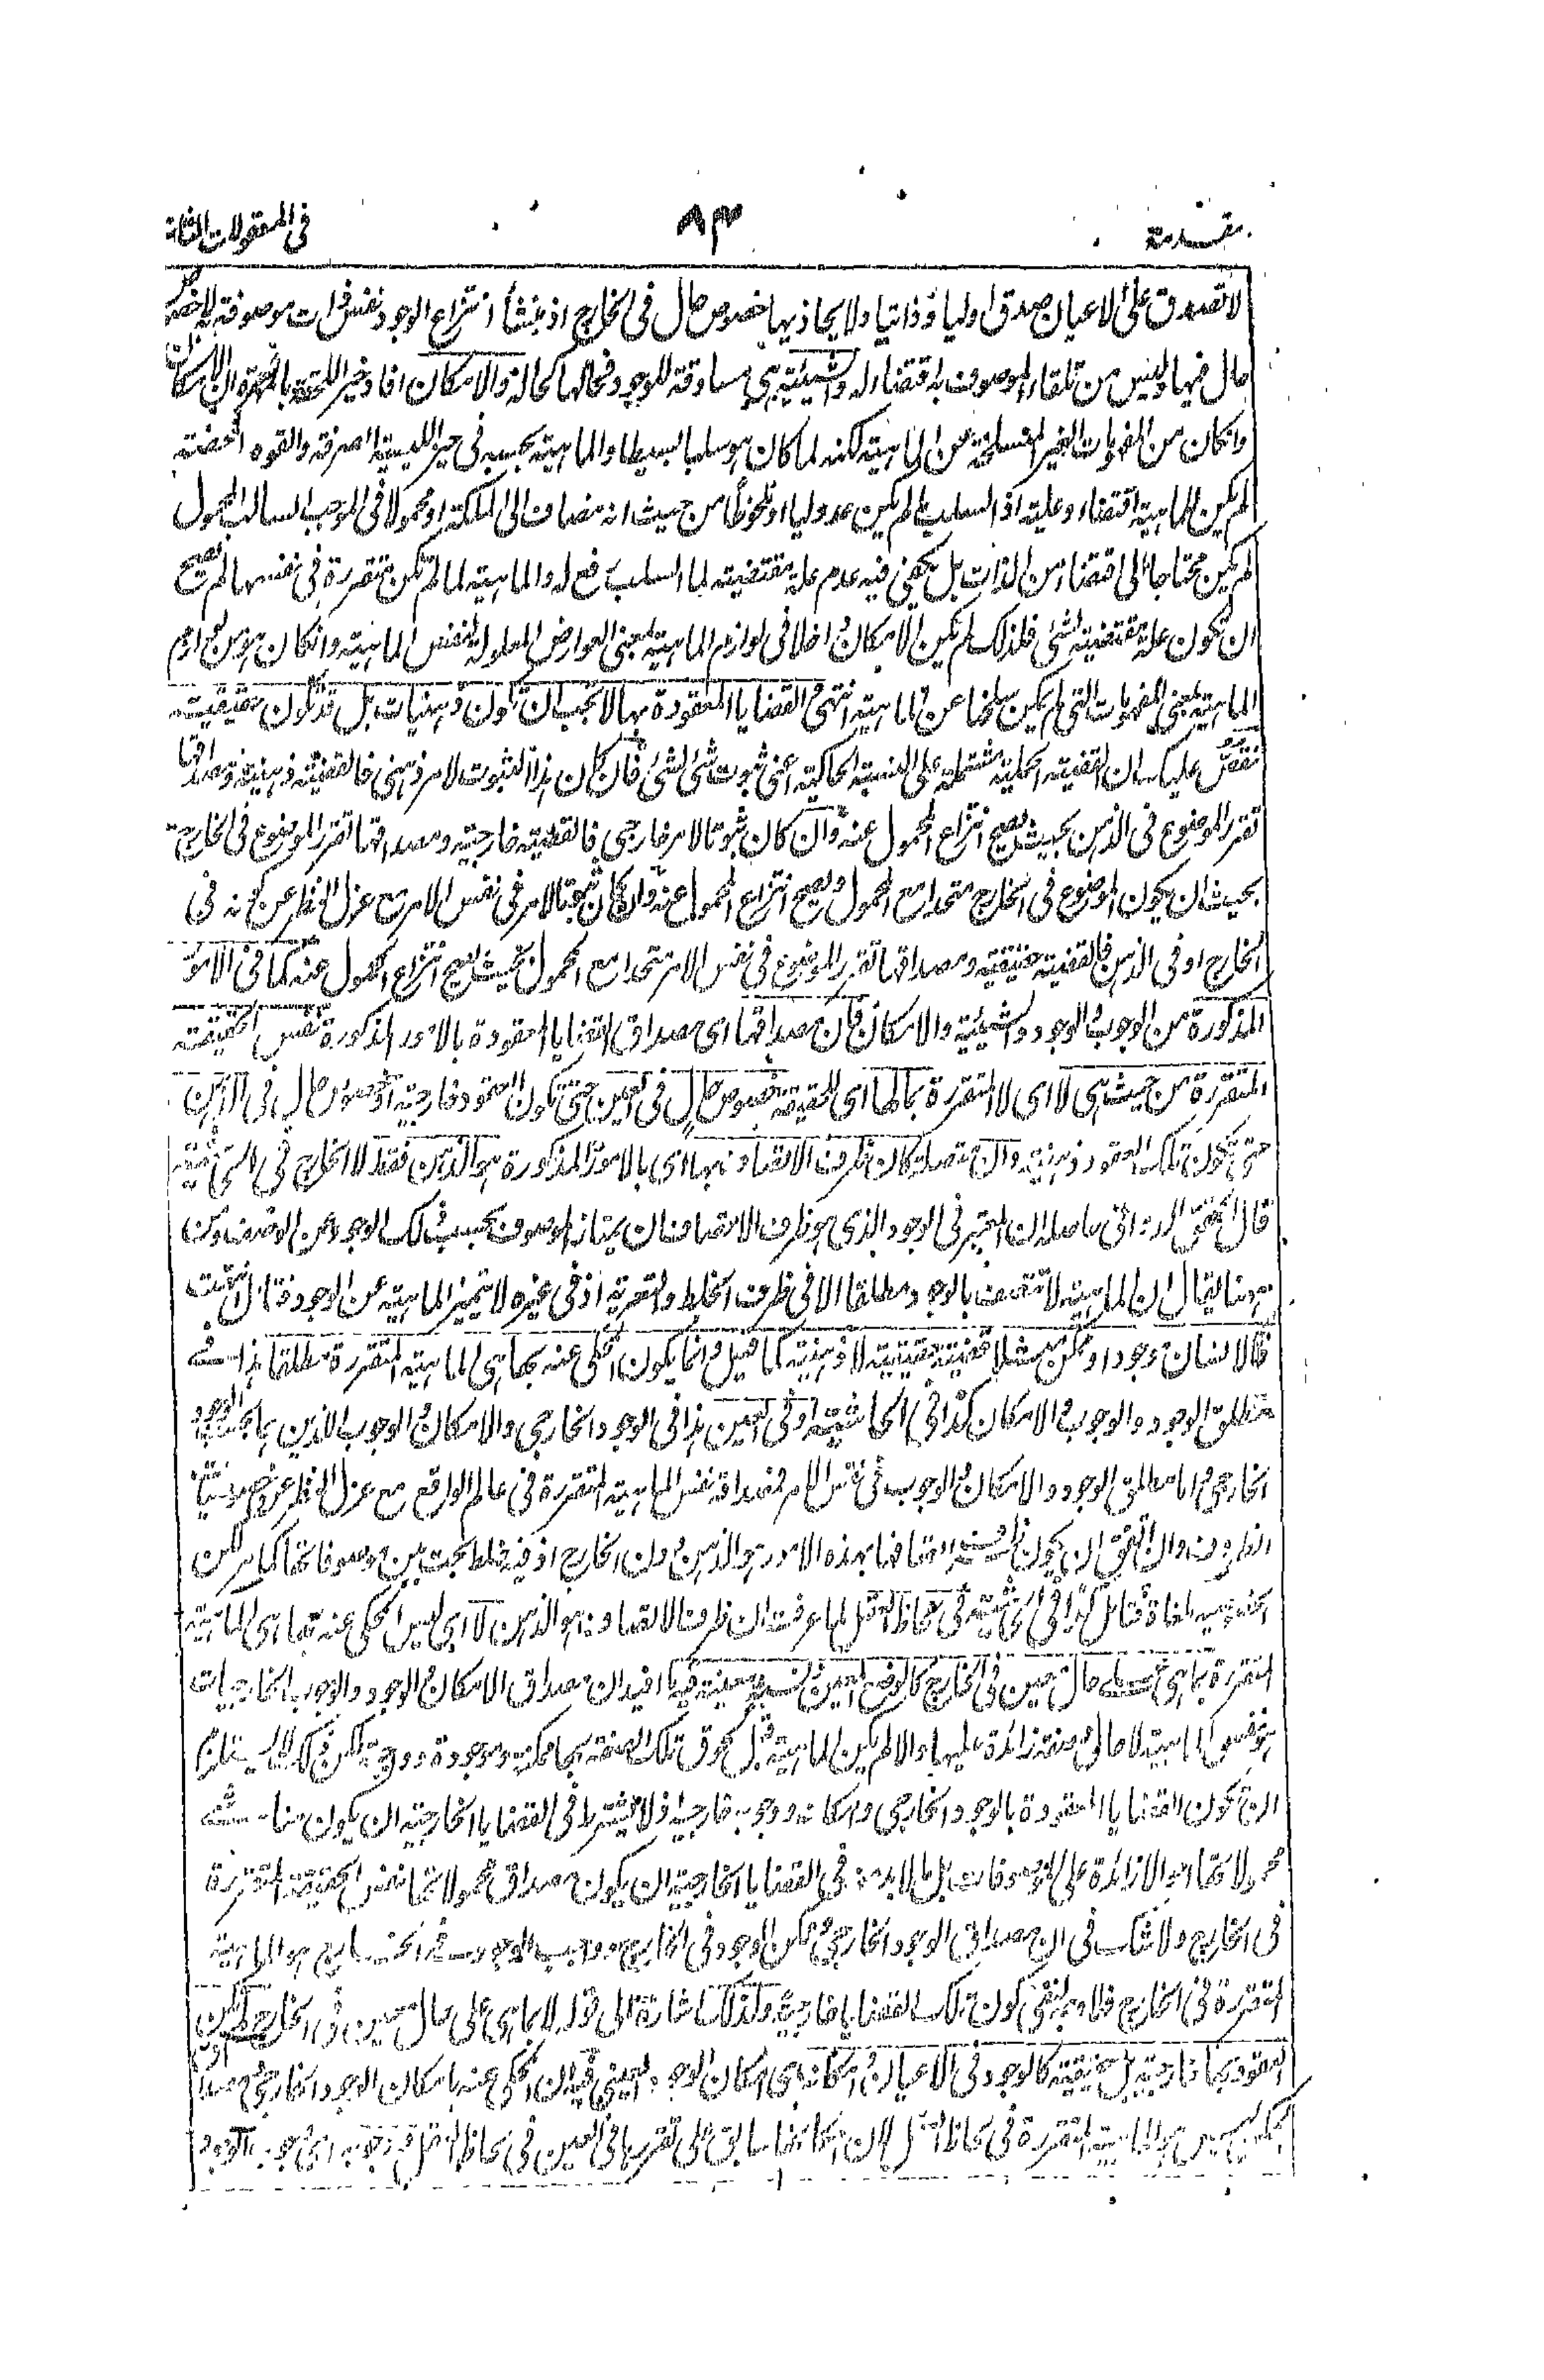 مقدمة
٨٣
فى المعقولات الثانية
لا تصدق على الاعيان صدقا اوليا وذاتيا ولا يحاذيها خصوص حال فى الخارج اذ منشأ انتزاع الوجود نفس ذات موصوفة لا خصوص
حال فيها وليس من تلقاء الموصوف به اقتضاء له والشيئية هى مساوقة للوجود فحالها كحاله والامكان افاد خير اللحقة بالمهرة ان الامكان
وانكان من المفهومات الغير المنسلخة عن الماهية لكنه لما كان هو سلبا بسيطا والماهية بحسبه فى حيز الليسية الصرفة والقوه المحضة
لم يكن للماهية اقتضاء وعلية اذ السلب ما لم يكن عدوليا او ملحوظا من حيث انه مضاف الى الملكة او محمولا فى الموجب السالب المحمول
لم يكن محتاجا الى اقتضاء من الذات بل يكفى فيه عدم علة مقتضية لما السلب رفع له والماهية لما لم تكن متقررة فى نفسها لم تصح
ان تكون علة مقتضية لشئ فلذلك لم يكن الامكان داخلا فى لوازم الماهية بمعنى العوارض المعلولة لنفس الماهية وانكان هو من لوازم
الماهية بمعنى المفهومات التى لم يكن سلخها عن الماهية انتهى والقضايا المعقودة بها لا يجب ان تكون ذهنيات بل قد تكون حقيقية
نقص عليك ان القضية الحملية مشتملة على النسبة الحاكية اعنى ثبوت شئ لشئ فان كان هذا الثبوت لامر ذهنى فالقضية ذهنية ومصداقها
تقرر الموضوع فى الذهن بحيث يصح انتزاع المحمول عنه وان كان ثبوتا لامر خارجى فالقضية خارجية ومصداقها تقرر الموضوع فى الخارج
بحيث ان يكون الموضوع فى الخارج متحدا مع المحمول ويصح انتزاع المحمول عنه وان كان ثبوتا لامر فى نفس الامر مع عزل النظر عن كونه فى
الخارج او فى الذهن فالقضية حقيقية ومصداقها تقرر الموضوع فى نفس الامر متحدا مع المحمول بحيث يصح انتزاع المحمول عنه كما فى الامور
المذكورة من الوجوب والوجود والشيئية والامكان فان مصداقها اى مصداق القضايا المعقودة بالامور المذكورة نفس الحقيقة
المتقررة من حيث هى لا اى لا المتقررة بمالها اى للحقيقة خصوص حال فى العين حتى تكون العقود خارجية او خصوص حال فى الذهن
حتى تكون تلك العقود ذهنية وان تصدر كان ظرف الاتصاف بها اى بالامور المذكورة هو الذهن فقط لا الخارج فى الحاشية
قال المحقق الدوانى حاصله ان المعتبر فى الوجود الذى هو ظرف الاتصاف ان يمتاز الموصوف بحسب ذلك الوجود عن الوصف ومن
ههنا يقال ان الماهية لا تتصف بالوجود مطلقا الا فى ظرف الخلط والتعرية اذ فى غيره لا تتميز الماهية عن الوجود فتأمل انتهت
فالانسان موجود او ممكن مثلا قضية حقيقية لا ذهنية كما قيل وانما يكون المحكى عنه بها هى الماهية المتقررة مطلقا هذا فى
مطلق الوجود والوجوب والامكان كذا فى الحاشية او فى العين هذا فى الوجود الخارجى والامكان والوجوب الذين بحسب الوجود
الخارجى واما مطلق الوجود والامكان والوجوب فى نفس الامر فمصداقه نفس الماهية المتقررة فى عالم الواقع مع عزل النظر عن خصوصيات
الظروف وان اتفق ان يكون ظرف اتصافها بهذه الامور هو الذهن دون الخارج اذ فيه خلط بحت بين موصوفاتها كما مر لكن
الخصوصية ملغاة فتأمل كذا فى الحاشية فى لحاظ العقل لما عرفت ان ظرف الاتصاف هو الذهن لا اى ليس المحكى عنه بها هى الماهية
المتقررة بما هى على حال معين فى الخارج كالوضع المعين فيه افيد ان مصداق الامكان والوجود والوجوب الخارجيات
هو نفس الماهية لا حال وصفة زائدة عليها والا لم يكن الماهية قبل لحوق تلك الصفة بها ممكنة وموجودة وواجبة لكن ذلك لا يستلزم
ان لا تكون القضايا المعقودة بالوجود الخارجى وامكانه ووجوبه خارجية اذ لا يشترط فى القضايا الخارجية ان يكون مناشى
محمولاتها امورا زائدة على الموصوفات بل لا بد فى القضايا الخارجية ان يكون مصداق محمولاتها نفس الحقيقة المتقررة
فى الخارج ولا شك فى ان مصداق الوجود الخارجى وممكن الوجود فى الخارج وواجب الوجود فى الخارج هو الماهية
المتقررة فى الخارج فلا وجه لنفى كون تلك القضايا خارجية ولذلك اشارة الى قوله لا بما هى على حال معين فى الخارج لم تكن
العقود بها خارجية بل حقيقية كالوجود فى الاعيان وامكانه اى امكان الوجود العينى فيه ان المحكى عنه بامكان الوجود الخارجى
ليس هو الماهية المتقررة فى لحاظ العقل لان امكانها سابق على تقررها فى العين فى لحاظ العقل ووجوبه اى وجوب الوجود